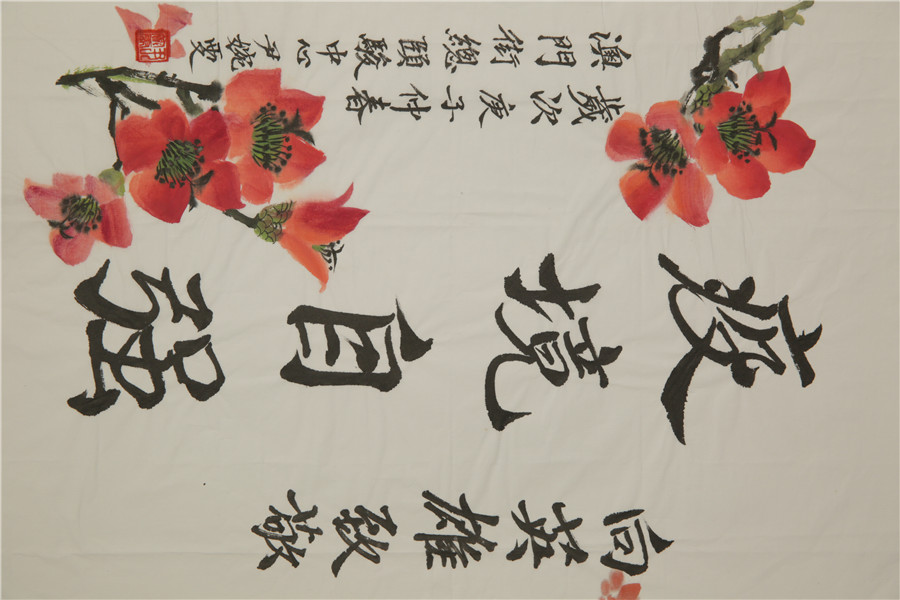 向英雄致敬
疫境自強
歲次庚子仲春
澳門街總頤駿中心尹婉雯